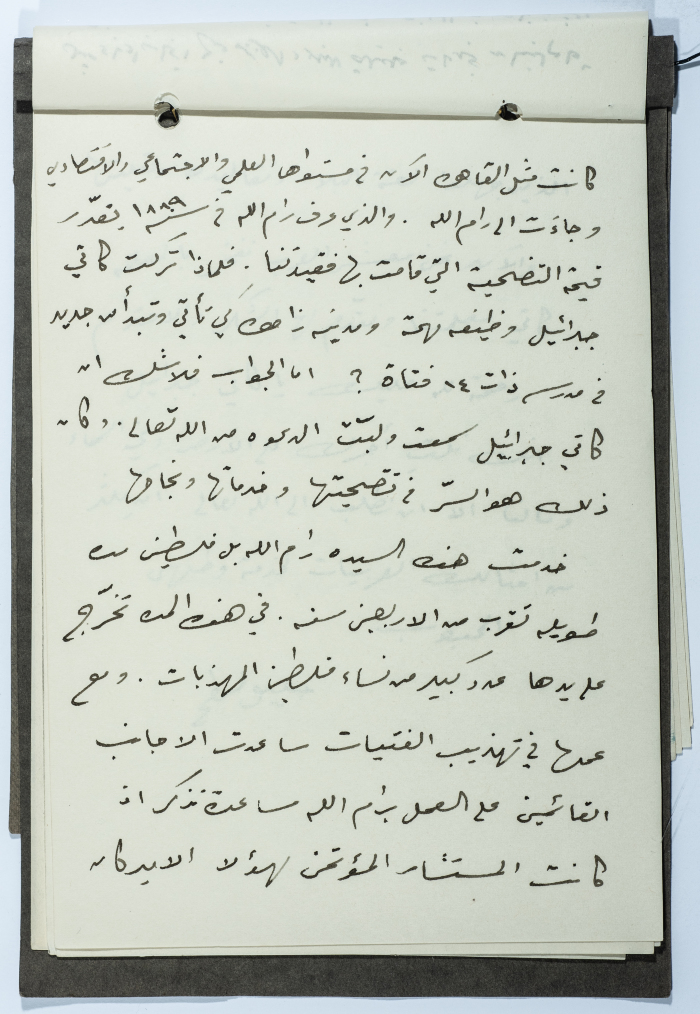 كانت مثل القاهره الآن في مستواها العلمي والاجتماعي والاقتصادي
وجاءت الى رام الله . والذي عرف رام الله في سنة ١٨٨٩ يقدّر
قيمة التضحية التي قامت بها فقيدتنا . فلماذا تركت كاتي
جبرائيل وظيفه مهمة ومدينه زاهره كي تأتي وتبدأ من جديد
في مدرسه ذات ١٤ فتاة ؟ اما الجواب فلا شك ان
كاتي جبرائيل سمعت ولبّت الدعوه من الله تعالى . وكان
ذلك هو السرّ في تضحيتها وخدماتها ونجاحها
خدمت هذه السيده رام الله بل فلسطين مده
طويله تقرب من الاربعين سنه . في هذه المده تخرّج
على يدها عدد كبير من نساء فلسطين المهذبات . ومع
عملها في تهذيب الفتيات ساعدت الاجانب
القائمين على العمل برام الله مساعدة تذكر اذ
كانت المستشار المؤتمن لهؤلا الاميركان